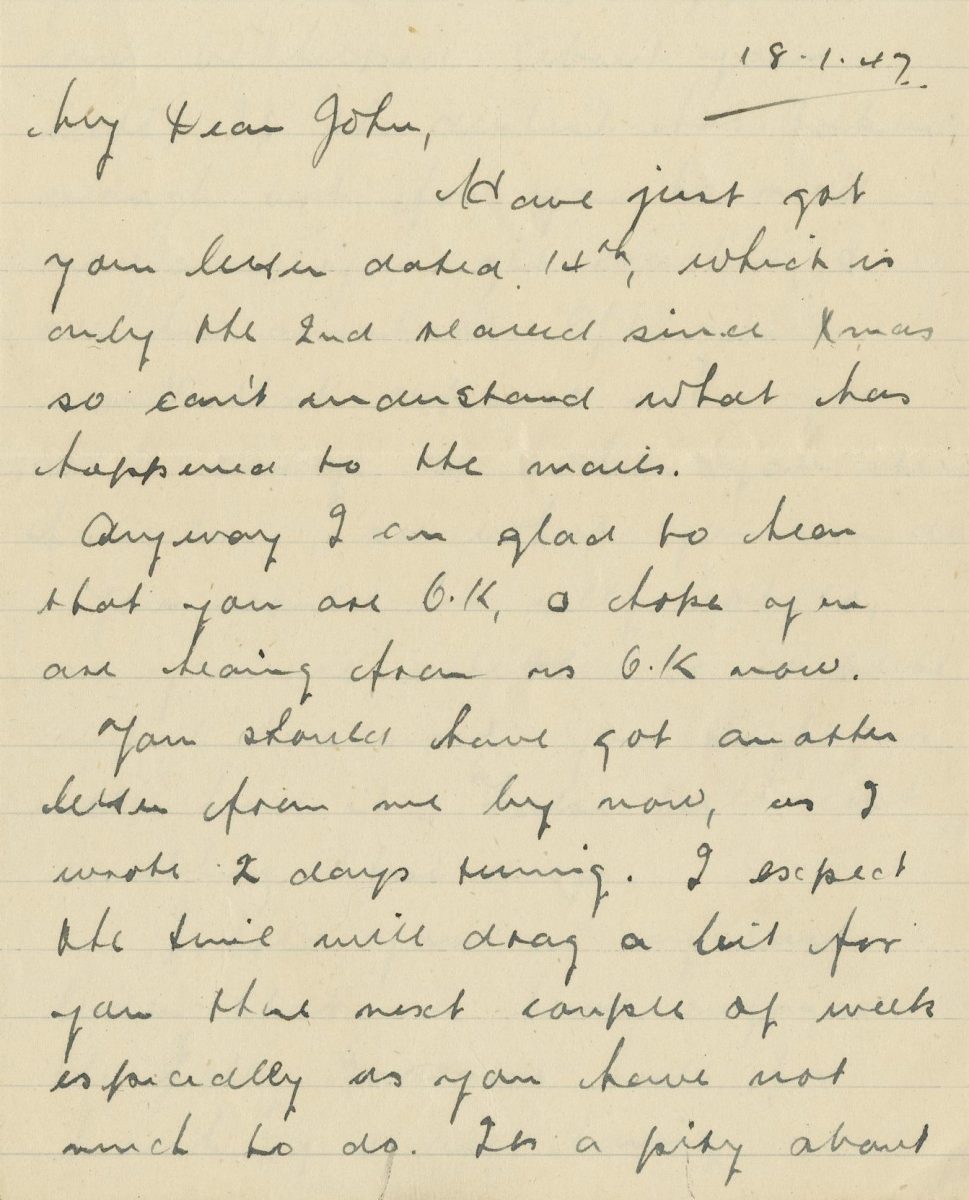 18.1.47
My Dear John,
Have just got
your letter dated 14th, which is
only the 2nd received since Xmas
so can't understand what has
happened to the mails.
Anyway I am glad to hear
that you are O.K, & hope you
are hearing from us O.K now.
You should have got another
letter from me by now, as I
wrote 2 days running. I expect
the time will drag a bit for
you these next couple of weeks
especially as you have not
much to do. Its a pity about